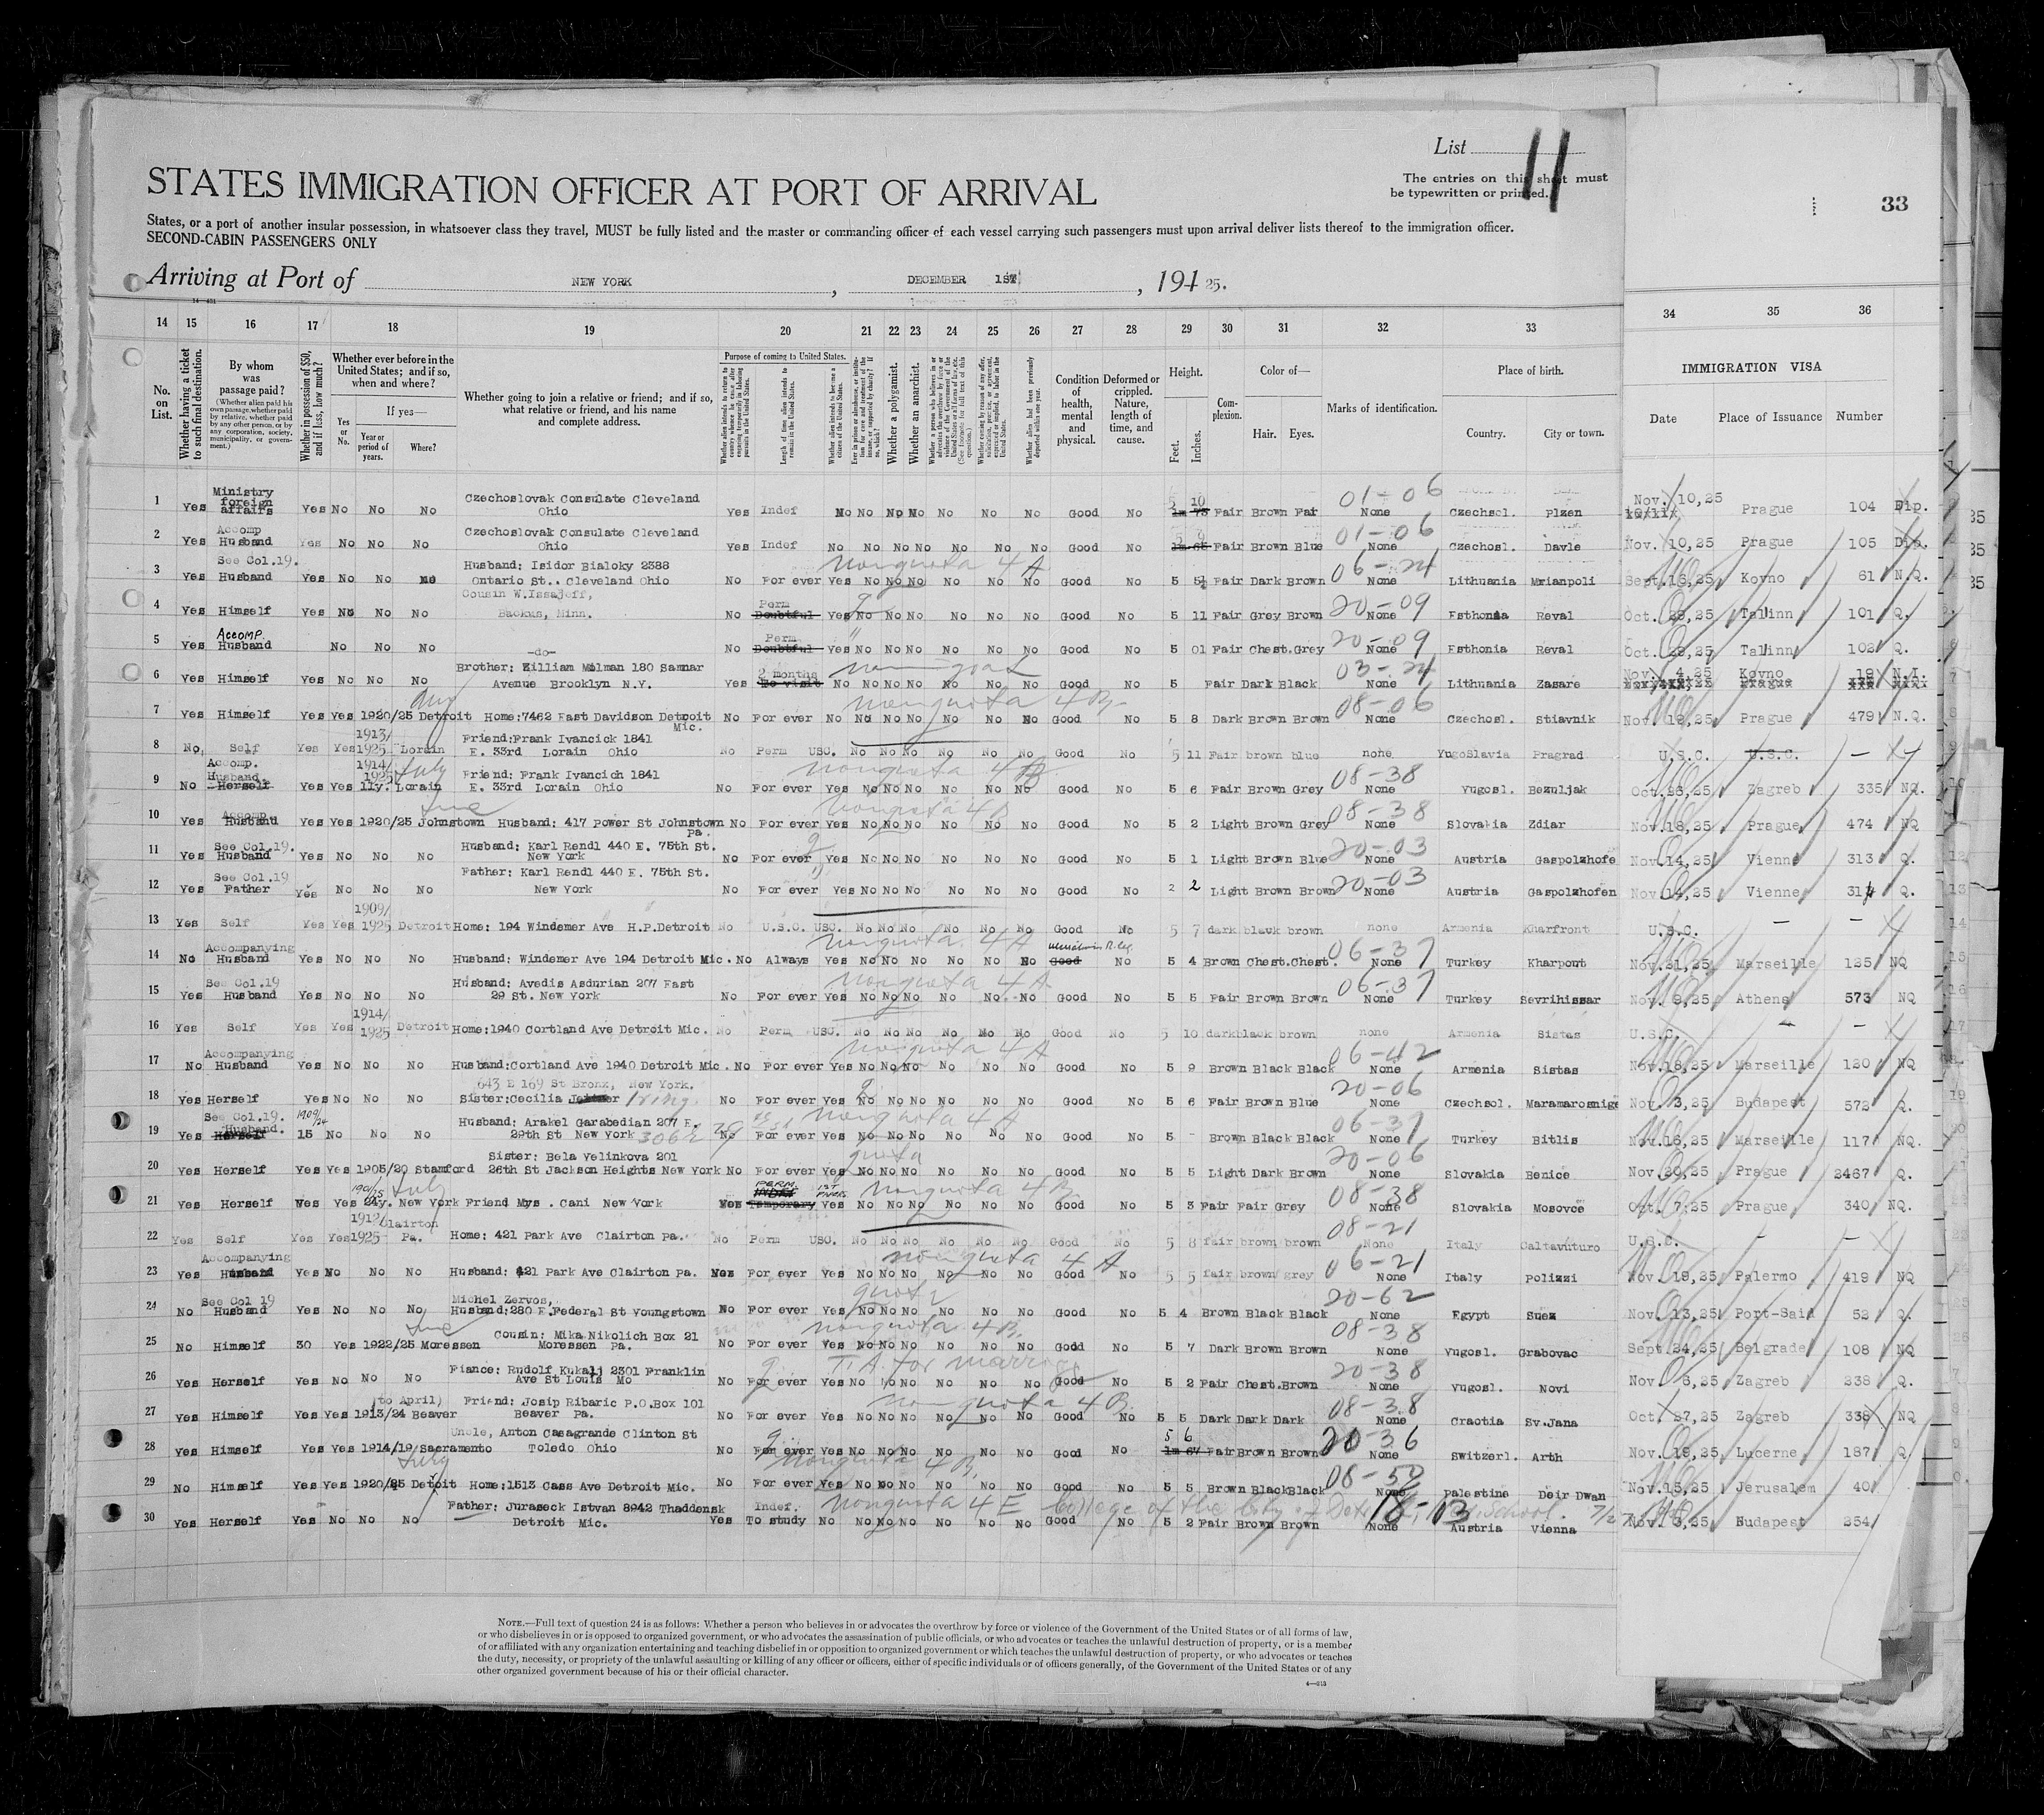 List 11
The entries on this sheet must
be typewritten or printed.
33
STATES IMMIGRATION OFFICER AT PORT OF ARRIVAL
States, or a port of another insular possession, in whatsoever class they travel, MUST be fully listed and the master or commanding officer of each vessel carrying such passengers must upon arrival deliver lists thereof to the immigration officer.
SECOND-CABIN PASSENGERS ONLY
Arriving at Port of NEW YORK, DECEMBER 1ST, 191 25.
14 15 16 17 18 19 20 21 22 23 24 25 26 27 28 29 30 31 32 33 34 35 36
No. on List.
Whether having a ticket to such final destination.
By whom was passage paid?
(Whether alien paid his own passage, whether paid by relative, whether paid by any other person, or by any corporation, society, municipality, or government.)
Whether in possession of $50, and if less, how much?
Whether ever before in the United States; and if so, when and where?
If yes—
Yes or No.
Year or period of years.
Where?
Whether going to join a relative or friend; and if so, what relative or friend, and his name and complete address.
Purpose of coming to United States.
Length of time alien intends to remain in the United States.
Whether a polygamist.
Whether an anarchist.
Condition of health, mental and physical.
Deformed or crippled. Nature, length of time, and cause.
Height.
Feet. Inches.
Complexion.
Color of—
Hair. Eyes.
Marks of identification.
Place of birth.
Country. City or town.
IMMIGRATION VISA
Date Place of Issuance Number
1 Yes Ministry foreign affairs Yes No No No Czechoslovak Consulate Cleveland Ohio Yes Indef No No No No No No No Good No 5 10 Fair Brown Fair 01-06 None Czechosl. Plzen Nov. 10,25 Prague 104 Dip.
2 Yes Accomp Husband Yes No No No Czechoslovak Consulate Cleveland Ohio Yes Indef No No No No No No No Good No Fair Brown Blue 01-06 None Czechosl. Davle Nov. 10,25 Prague 105 Dip.
3 Yes See Col.19. Husband Yes No No No Husband: Isidor Bialoky 2388 Ontario St.. Cleveland Ohio No For ever Yes No No No No No No nonquota 4 A Good No 5 5½ Fair Dark Brown 06-24 None Lithuania Mrianpoli Sept.16,25 Kovno 61 N.Q.
4 Yes Himself Yes No No No Cousin W.Issajeff, Backus, Minn. No Perm Doubtful Yes No No No No No No Good No 5 11 Fair Grey Brown 20-09 None Esthonia Reval Oct. 29,25 Talinn 101 Q.
5 Yes Accomp. Husband No No No -do- No Perm Doubtful Yes No No No No No No Good No 5 01 Fair Chest.Grey 20-09 None Esthonia Reval Oct. 29,25 Talinn 102 Q.
6 Yes Himself Yes No No No Brother: Zilliam Milman 180 Samnar Avenue Brooklyn N.Y. Yes 2 months To visit No No No No No No No Good No 5 Fair Dark Black 03-24 None Lithuania Zasare Nov. 4,25 Kovno 19 N.I.
7 Yes Himself Yes Yes 1920/25 Detroit Home:7462 East Davidson Detroit Mic. No For ever No No No No No No No nonquota 4 B Good No 5 8 Dark Brown Brown 08-06 None Czechosl. Stiavnik Nov. 18,25 Prague 479 N.Q.
8 No, Self Yes Yes 1913/1925 Lorain Friend:Frank Ivancick 1841 E. 33rd Lorain Ohio No Perm USC. No No No No No No Good No 5 11 Fair brown blue none YugoSlavia Pragrad U.S.C. U.S.C. —
9 No Accomp. Husband Herself Yes Yes 1914/1925 11y. July Lorain Friend: Frank Ivancich 1841 E. 33rd Lorain Ohio No For ever Yes No No No No No No nonquota 4 B Good No 5 6 Fair Brown Grey 08-38 None Yugosl. Bezuljak Oct.26,25 Zagreb 335 NQ.
10 Yes Accomp. Husband Yes Yes 1920/25 June Johnstown Husband: 417 Power St Johnstown Pa. No For ever Yes No No No No No No nonquota 4 B Good No 5 2 Light Brown Grey 08-38 None Slovakia Zdiar Nov.18,25 Prague 474 NQ
11 Yes See Col.19. Husband Yes No No No Husband: Karl Rendl 440 E. 75th St. New York No For ever Yes No No No No No No Good No 5 1 Light Brown Blue 20-03 None Austria Gaspolzhofe Nov.14,25 Vienne 313 Q.
12 Yes See Col.19 Father Yes No No No Father: Karl Rendl 440 E. 75th St. New York No For ever Yes No No No No No No Good No 2 2 Light Brown Brown 20-03 None Austria Gaspolzhofen Nov.14,25 Vienne 314 Q.
13 Yes Self Yes Yes 1909/1925 Detroit Home: 194 Windemer Ave H.P.Detroit No U.S.C. USC. No No No No No No Good No 5 7 dark black brown none Armenia Kharfront U.S.C. — —
14 No Accompanying Husband Yes No No No Husband: Windemer Ave 194 Detroit Mic. No Always Yes No No No No No No nonquota 4 A Good No 5 4 Brown Chest.Chest. 06-37 None Turkey Kharpout Nov.21,25 Marseille 125 NQ
15 Yes See Col.19 Husband Yes No No No Husband: Avedis Asdurian 207 East 29 St. New York No For ever Yes No No No No No No nonquota 4 A Good No 5 5 Fair Brown Brown 06-37 None Turkey Sevrihissar Nov. 9,25 Athens 573 NQ
16 Yes Self Yes Yes 1914/1925 Detroit Home:1940 Cortland Ave Detroit Mic. No Perm USC. No No No No No No Good No 5 10 darkblack brown none Armenia Sistas U.S.C. — —
17 No Accompanying Husband Yes No No No Husband:Cortland Ave 1940 Detroit Mic. No For ever Yes No No No No No No nonquota 4 A Good No 5 9 Brown Black Black 06-42 None Armenia Sistas Nov.18,25 Marseille 120 NQ
18 Yes Herself Yes No No No 643 E 169 St Bronx, New York. Sister:Cecilia Irving. No For ever Yes No No No No No No Good No 5 6 Fair Brown Blue 20-06 None Czechsol. Maramarosnige Nov. 3,25 Budapest 572 Q.
19 Yes See Col.19. Husband. Herself 15 1909/24 No No No Husband: Arakel Garabedian 207 E. 29th St New York 306 E 29 No For ever Yes No No No No No No nonquota 4 A Good No 5 - Brown Black Black 06-37 None Turkey Bitlis Nov.16,25 Marseille 117 NQ.
20 Yes Herself Yes Yes 1905/20 Stamford Sister: Bela Velinkova 201 26th St Jackson Heights New York No For ever Yes No No No No No No quota Good No 5 5 Light Dark Brown 20-06 None Slovakia Benice Nov 20,25 Prague 2467 Q.
21 Yes Herself Yes Yes 1901/25 24y. July New York Friend Mys . Cani New York Yes PERM. INDEF Temporary 1ST PAPERS Yes No No No No No No nonquota 4 B Good No 5 3 Fair Fair Grey 08-38 None Slovakia Mosovce Oct. 7,25 Prague 340 NQ.
22 Yes Self Yes Yes 1912/1925 Clairton Pa. Home: 421 Park Ave Clairton Pa. No Perm USC. No No No No No No Good No 5 8 fair brown brown 08-21 None Italy Caltavuturo U.S.C. — —
23 Yes Accompanying Husband Yes No No No Husband: 421 Park Ave Clairton Pa. For ever Yes No No No No No No nonquota 4 A Good No 5 5 fair brown grey 06-21 None Italy Polizzi Nov. 19,25 Palermo 419 NQ
24 No See Col 19 Husband Yes No No No Michel Zervos, Husband:280 E.Federal St Youngstown No For ever Yes No No No No No No quota Good No 5 4 Brown Black Black 20-62 None Egypt Suez Nov.13,25 Port-Said 52 Q.
25 No Himself 30 Yes 1922/25 June Moressen Cousin: Mika Nikolich Box 21 Moressen Pa. No For ever Yes No No No No No No nonquota 4 B. Good No 5 7 Dark Brown Brown 08-38 None Yugosl. Grabovac Sept.24,25 Belgrade 108 NQ
26 Yes Herself Yes No No No Fiance: Rudolf Kukalj 2301 Franklin Ave St Louis Mo No For ever Yes No No No No No No q. T.A. for marriage Good No 5 2 Fair Chest.Brown 20-38 None Yugosl. Novi Nov. 6,25 Zagreb 238 Q.
27 Yes Himself Yes Yes (to April) 1913/24 Beaver Friend: Josip Ribaric P.O.Box 101 Beaver Pa. No For ever Yes No No No No No No nonquota 4 B. Good No 5 5 Dark Dark Dark 08-38 None Craotia Sv.Jana Oct. 27,25 Zagreb 338 NQ
28 Yes Himself Yes Yes 1914/19 Sacramento Uncle, Anton Casagrande Clinton St Toledo Ohio No For ever Yes No No No No No No q. Good No 5 6 Fair Brown Brown 20-36 None Switzerl. Arth Nov. 19,25 Lucerne 187 Q.
29 No Himself Yes Yes 1920/25 July Detroit Home:1513 Cass Ave Detroit Mic. No For ever Yes No No No No No No nonquota 4 B. Good No 5 5 Brown BlackBlack 08-50 None Palestine Deir Dwan Nov.15,25 Jerusalem 40
30 Yes Herself Yes No No No Father: Juraseck Istvan 8942 Thaddensk Detroit Mic. Yes Indef. To study No No No No No No No nonquota 4 E College of the City of Detroit, School. Good No 5 2 Fair Brown Brown 18-13 None Austria Vienna Nov. 3,25 Budapest 254
NOTE.—Full text of question 24 is as follows: Whether a person who believes in or advocates the overthrow by force or violence of the Government of the United States or of all forms of law,
or who disbelieves in or is opposed to organized government, or who advocates the assassination of public officials, or who advocates or teaches the unlawful destruction of property, or is a member
of or affiliated with any organization entertaining and teaching disbelief in or opposition to organized government or which teaches the unlawful destruction of property, or who advocates or teaches
the duty, necessity, or propriety of the unlawful assaulting or killing of any officer or officers, either of specific individuals or of officers generally, of the Government of the United States or of any
other organized government because of his or their official character.